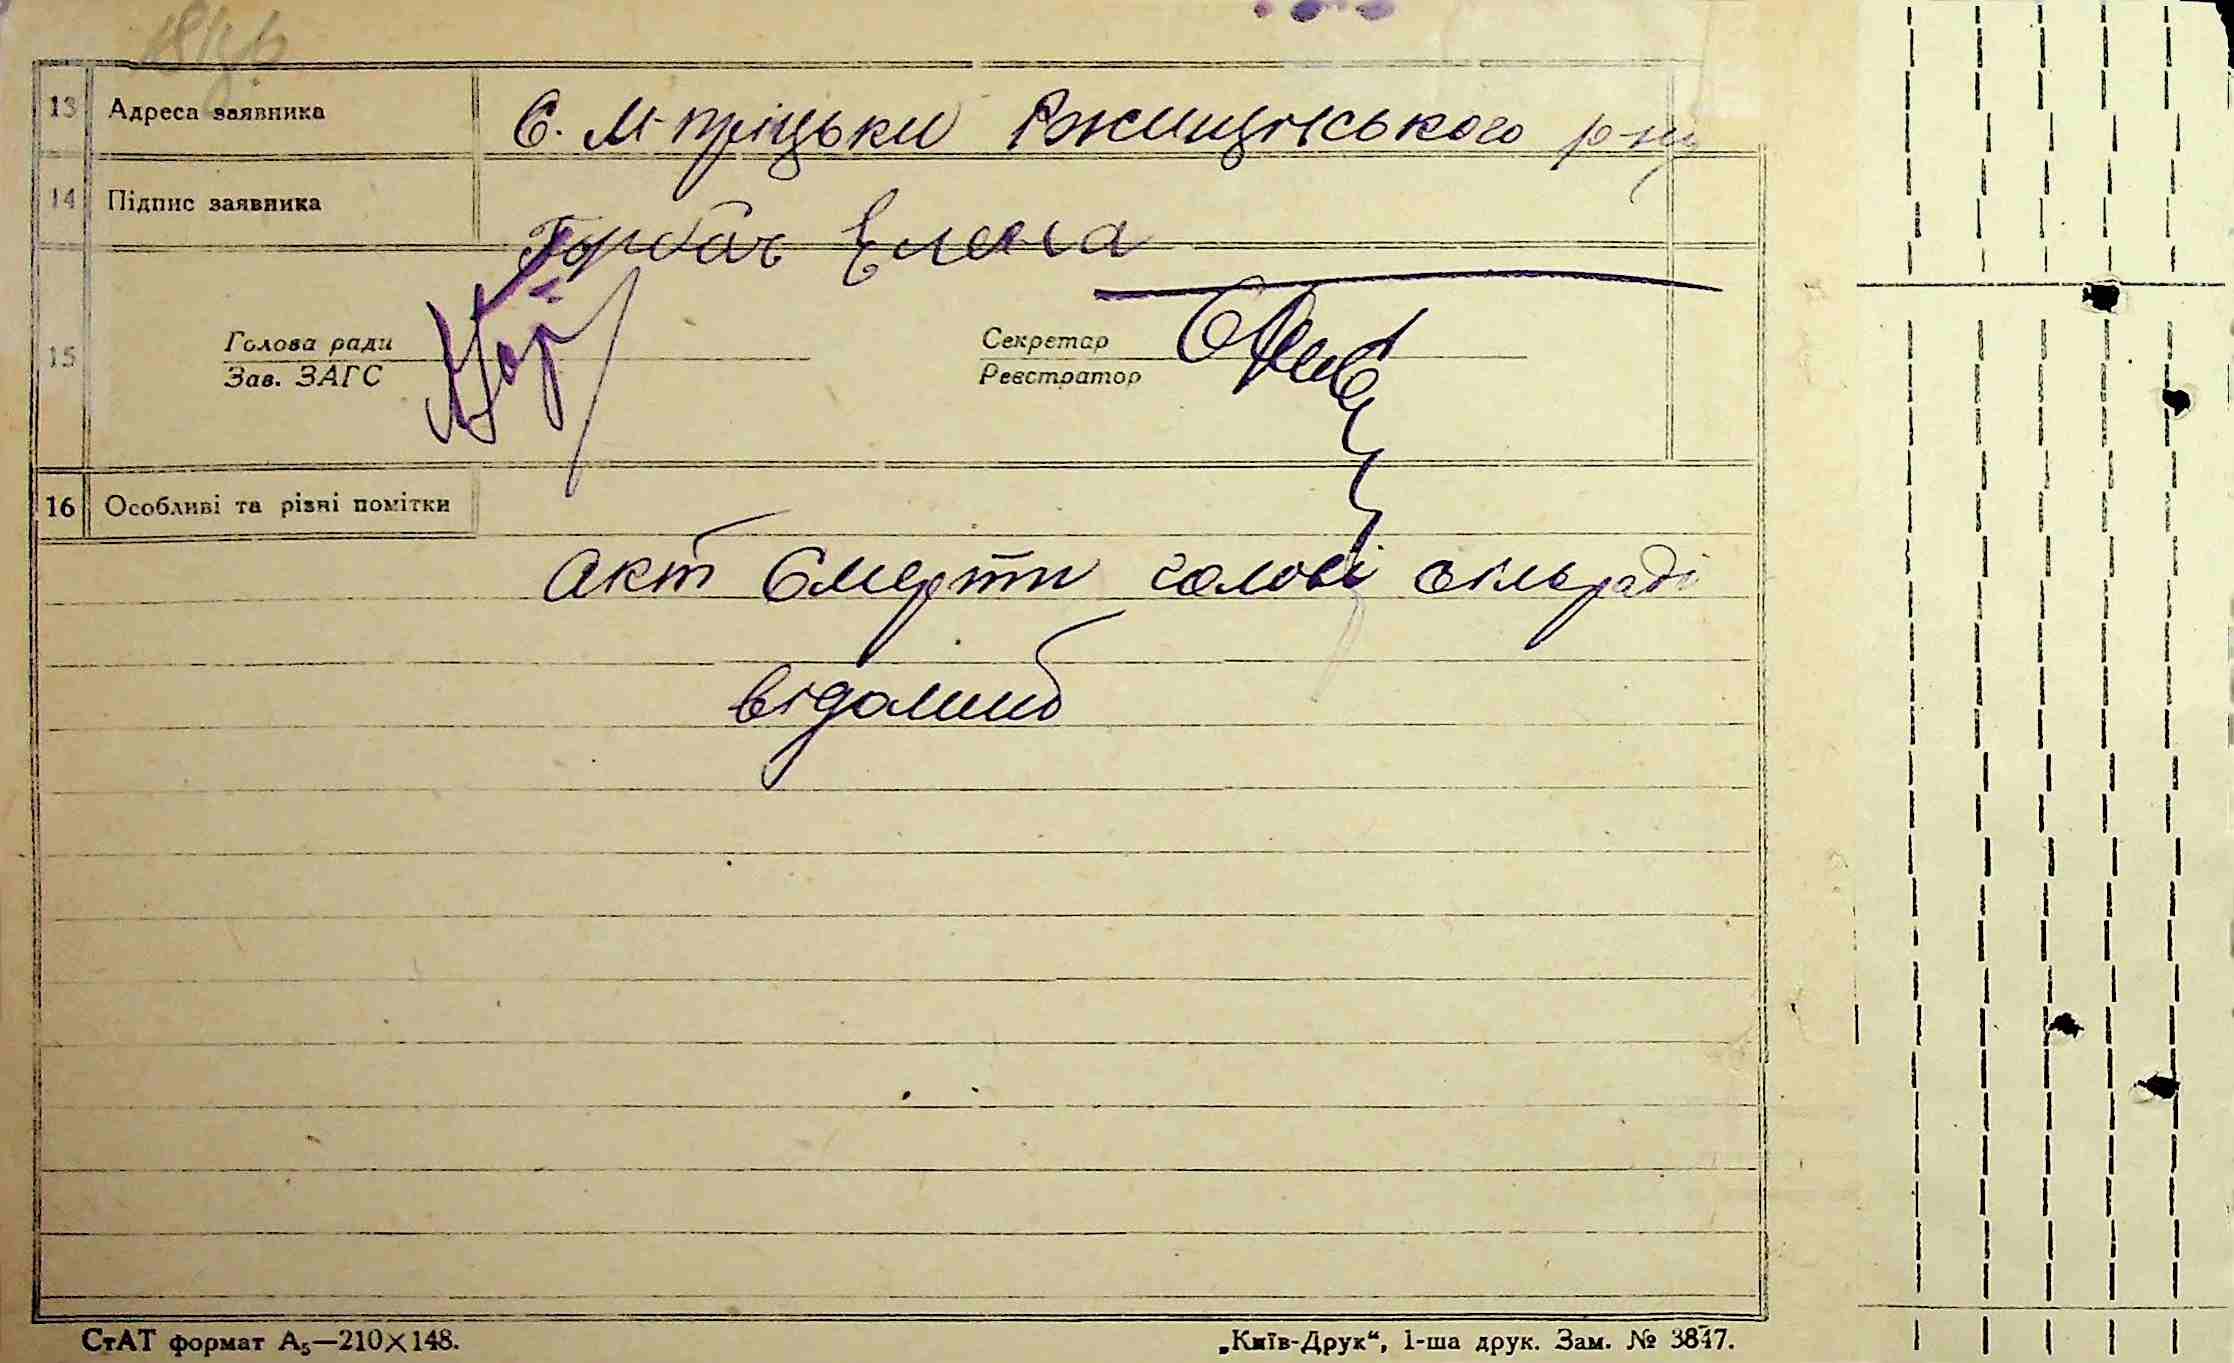 13 Адреса заявника С. М-Пріцьки Ржищівського р-ну
14 Підпис заявника Горбач Елена
15 Голова ради Секретар
Зав. ЗАГС Реєстратор
16 Особливі та різні помітки
Акт Смерти голові сільраді
відомий
СтАТ формат А₅—210×148. „Київ-Друк“, 1-ша друк. Зам. № 3847.